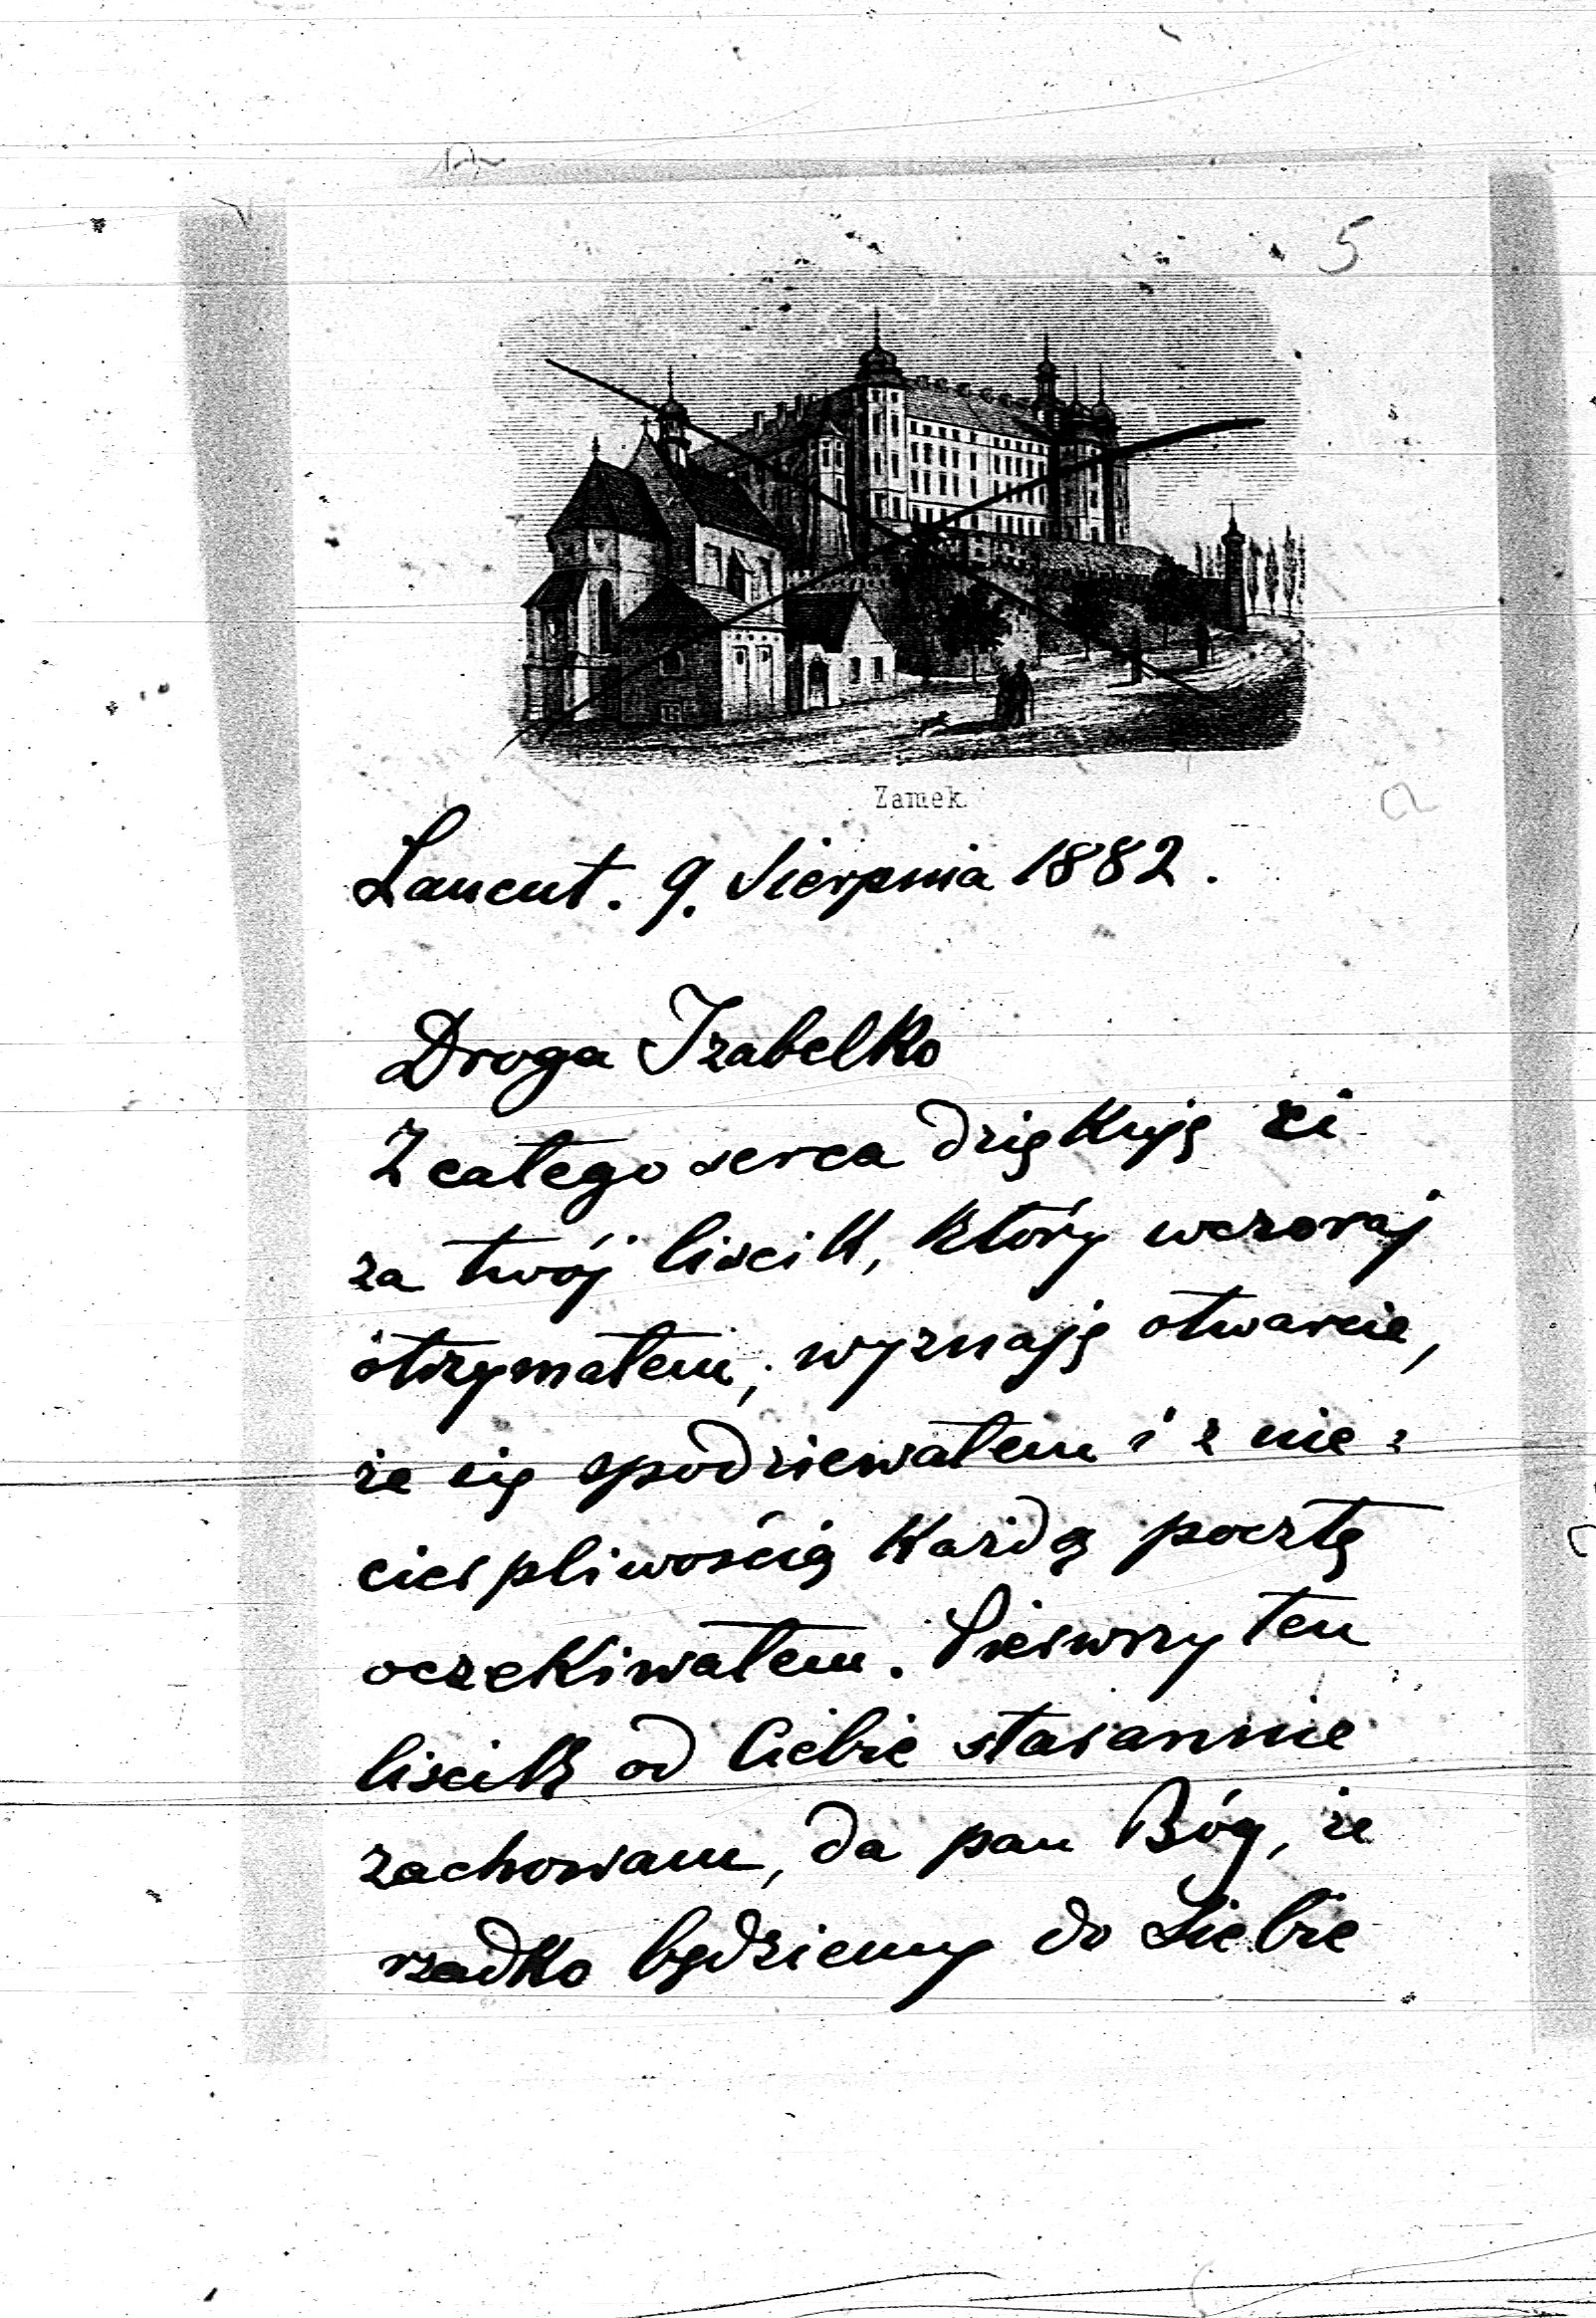 5
Zamek.
Lancut. 9. Sierpnia 1882.
Droga Izabelko
Z całego serca dziękuję ci
za twój liscik, który wczoraj
otrzymałem; wyznaję otwarcie,
że się spodziewałem i z nie=
cierpliwością każdą pocztę
oczekiwałem. Pierwszy ten
liscik od Ciebie starannie
zachowam, da pan Bóg, że
rzadko będziemy do Siebie